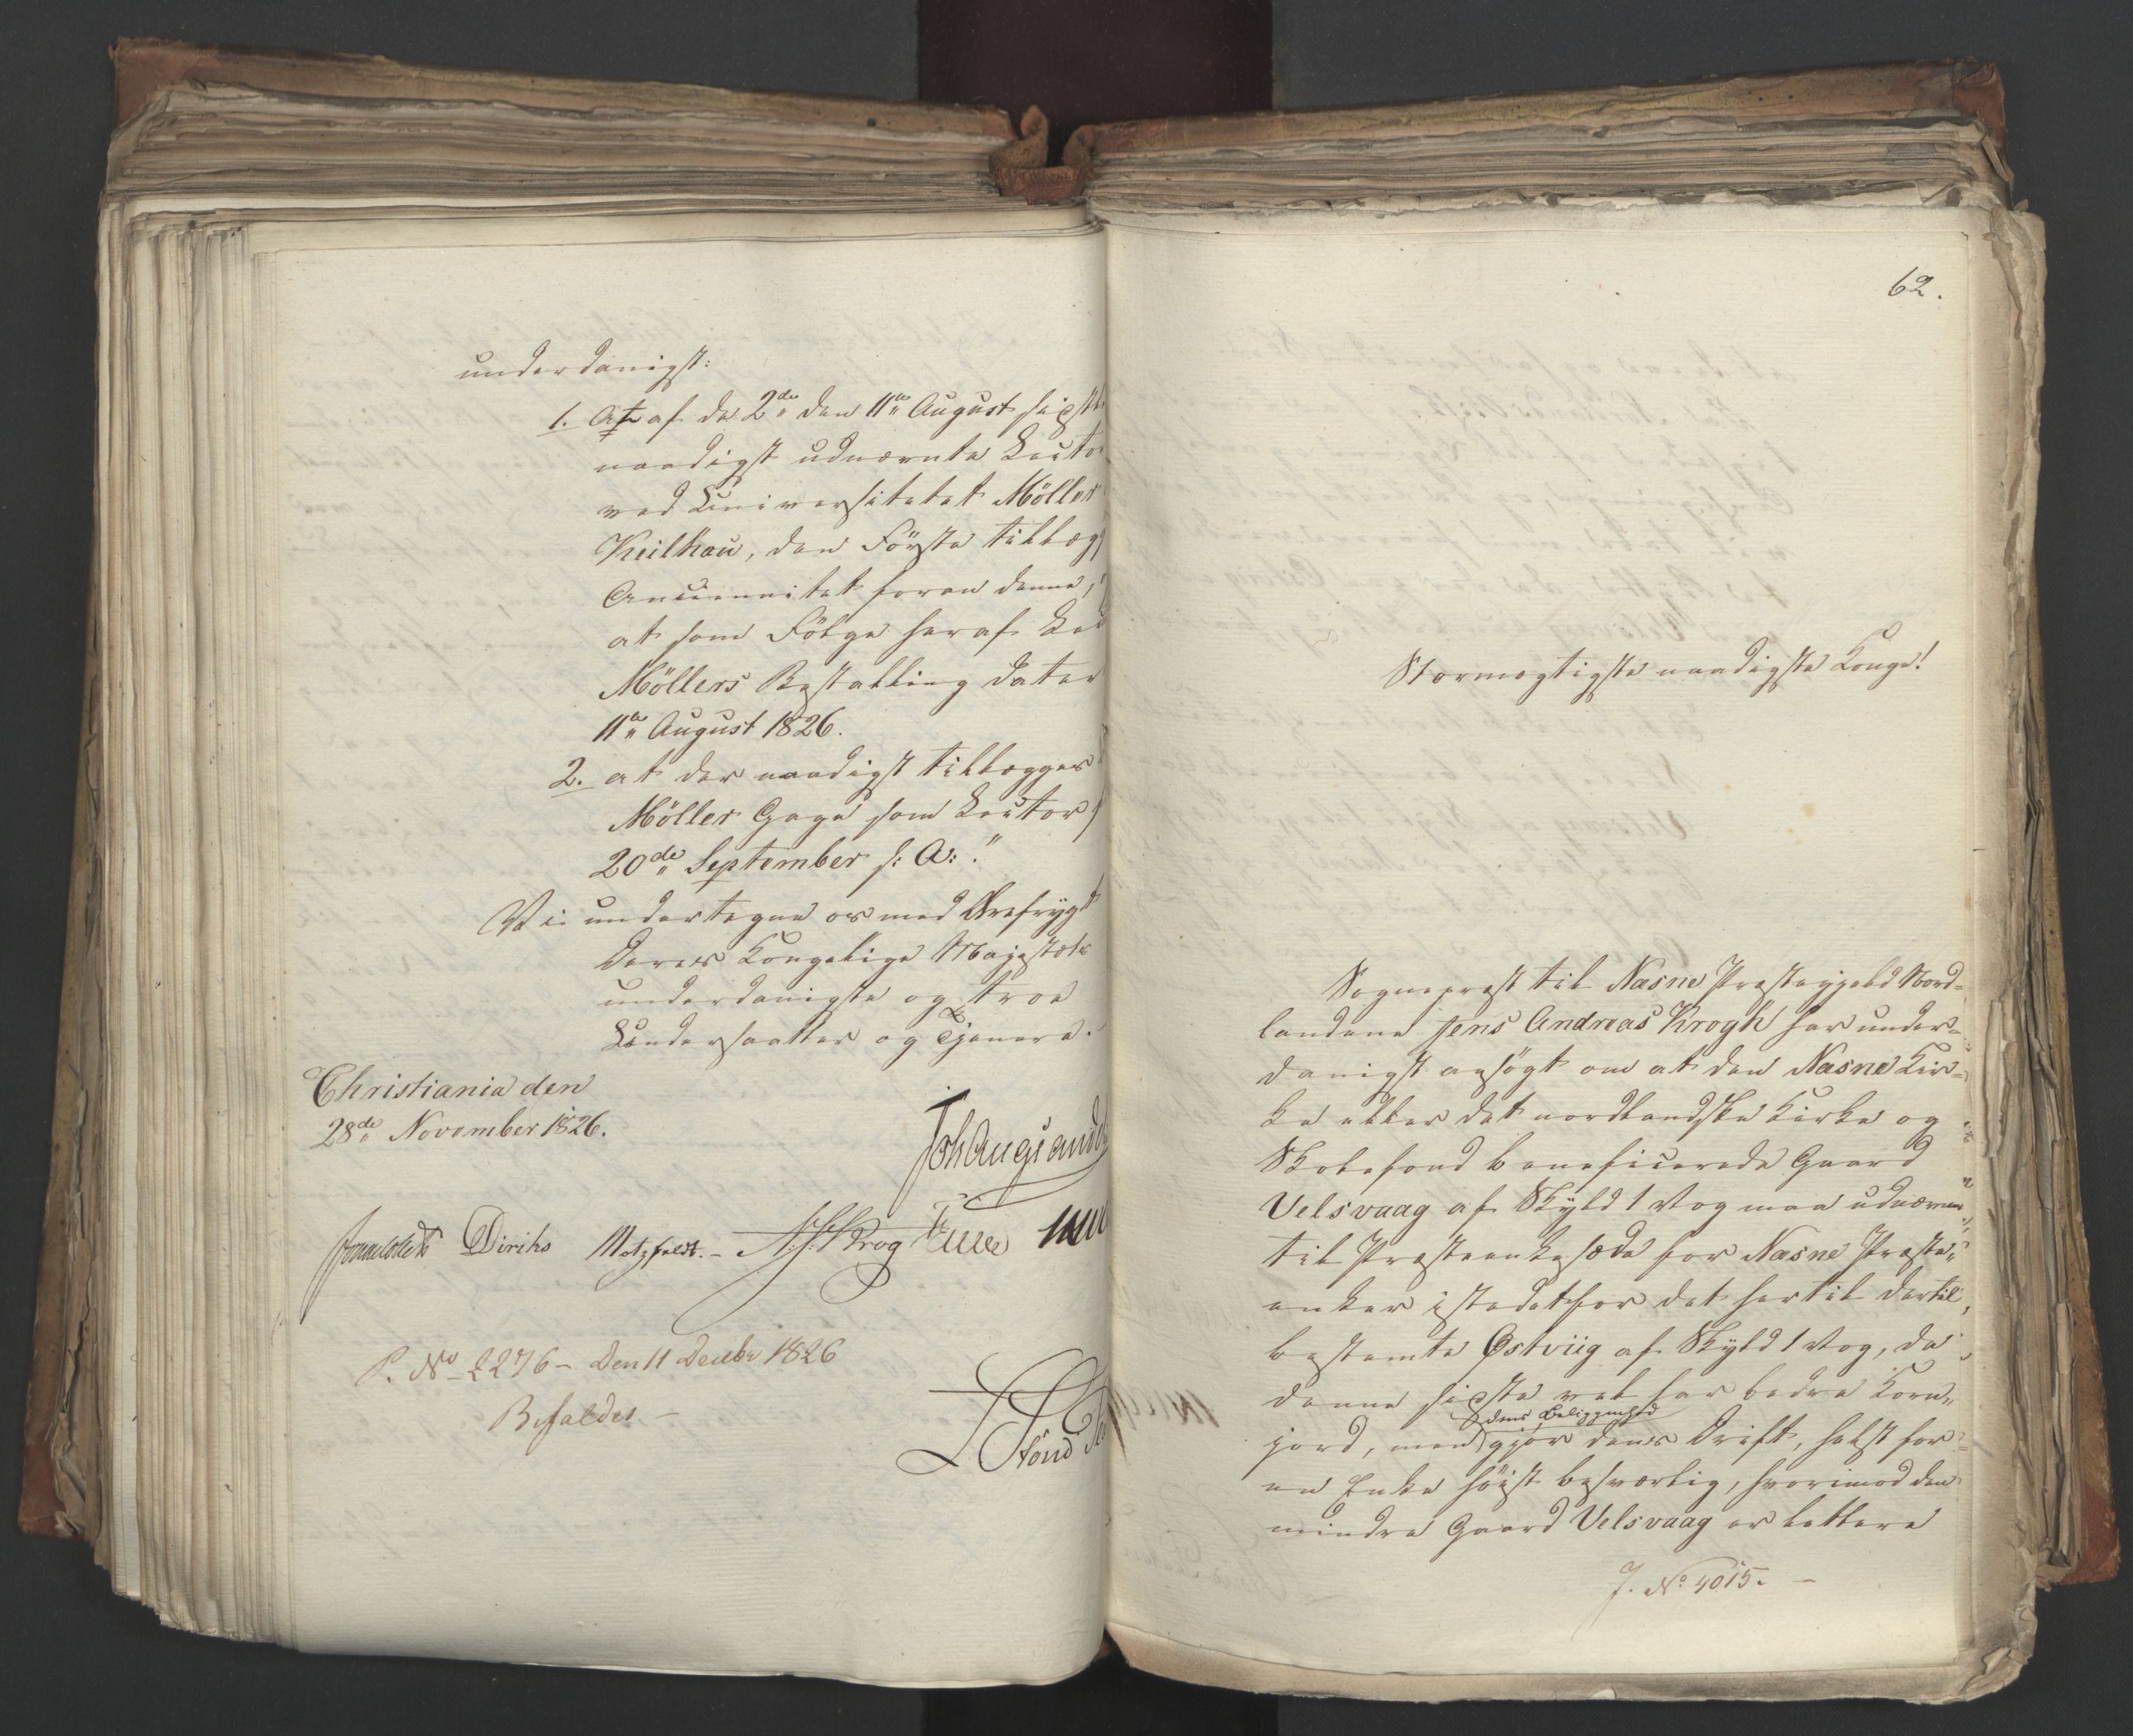 underdanigst:
1. At af de 2de den 11te August sidstl
naadigst udnævnte Lecto
ved Universitetet Möller
Keilhau, den Første tillægg
Anciennitet foran denne,
at som Følge heraf Lec
Möllers Bestalling dater
11te August 1826.
2. at der naadigst tillægges
Möller Gage som Lector f
20de September s: A: "
Vi undertegne os med Ærefrygt
Deres Kongelige Majestæts
underdanigste og troe
Undersaatter og Tjenere.
Christiania den
28de November 1826.
Joh Aug Sand
Collett Diriks Motzfeldt. Krog
P. No 2276 - Den 11 Decebr 1826
Befaldes -
62.
Stormægtigste naadigste Konge!
Sogneprest til Næsne Præstegjeld Nord-
landene Jens Andreas Krogh har under-
danigst ansøgt om at den Næsne Kir-
ke eller det nordlandske Kirke og
Skolefond beneficerede Gaard
Velsvaag af Skyld 1 Vog maa udnævnes
til Præsteenkesæde for Næsne Præste-
enker istedetfor det hertil dertil
bestemte Østviig af Skyld 1 Vog, da
denne sidste vel har bedre Korn-
dens Beliggenhed
jord, men gjør dens Drift, helst for
en Enke höist besværlig, hvorimod den
mindre Gaard Velsvaag er lettere
J. No 4015. -